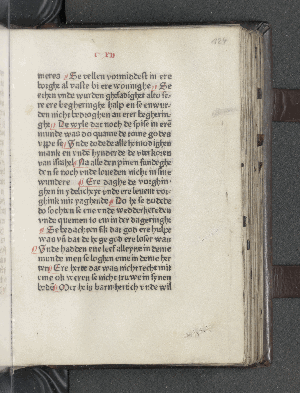 meres Se vellen vonmiddest in ere
borghe al vaste bi ere woninghe Se
ethen vnde wurden ghesadighet also se-
re ere begheringhe halp en se en wur-
den nicht bedroghen an erer begherin-
ghe De wyle dat noch de spise in erem
munde was do quam de torne godes
vppe se Vnde dodede alle
mank en vnde hynderde de vterkoren
van israhel Na alle den pinen sundeghe-
den se noch vnde loueden nicht in sine
wundere Ere daghe de vorghin-
ghen in ydelicheyt vnde ere
ghink mit Do he se dodede
do sochten se ene vnde wedderkerden
vnde quemen to em in der dagheringhe
Se bedachten sik dat god ere hulpe
was vnde dat de hoge god ere loser was
Vnde hadden ene leef alleyne in deme
munde men se loghen eme in deme her-
ten Ere herte dat was nicht recht mit
eme ok weren se nicht truwe in synen
boden Mer he is barmhertich vnde wil